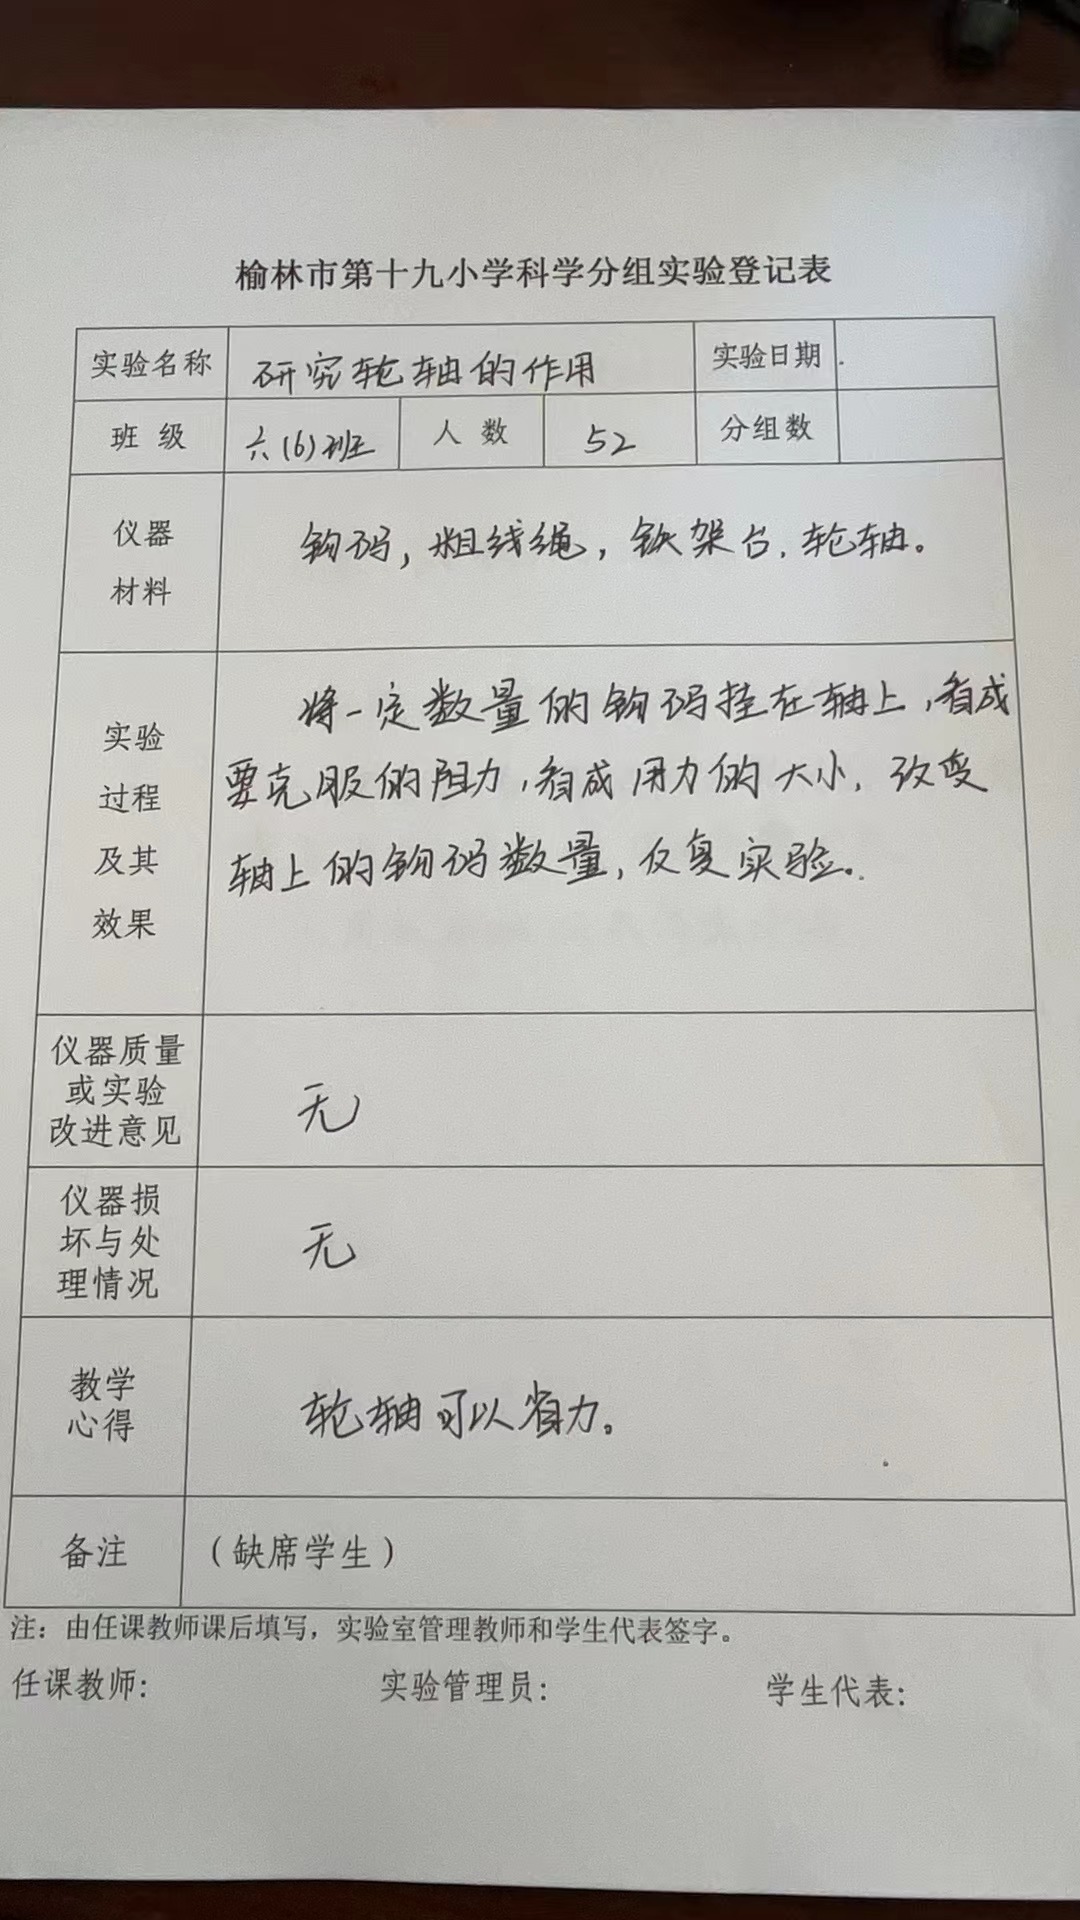 榆林市第十九小学科学分组实验登记表
实验名称 研究轮轴的作用 实验日期
班 级 六(6)班 人 数 52 分组数
仪器
材料
钩码,粗线绳,铁架台,轮轴。
实验
过程
及其
效果
将一定数量的钩码挂在轴上,看成
要克服的阻力,看成用力的大小,改变
轴上的钩码数量,反复实验。
仪器质量
或实验
改进意见
无
仪器损
坏与处
理情况
无
教学
心得
轮轴可以省力。
备注 (缺席学生)
注:由任课教师课后填写,实验室管理教师和学生代表签字。
任课教师: 实验管理员: 学生代表: